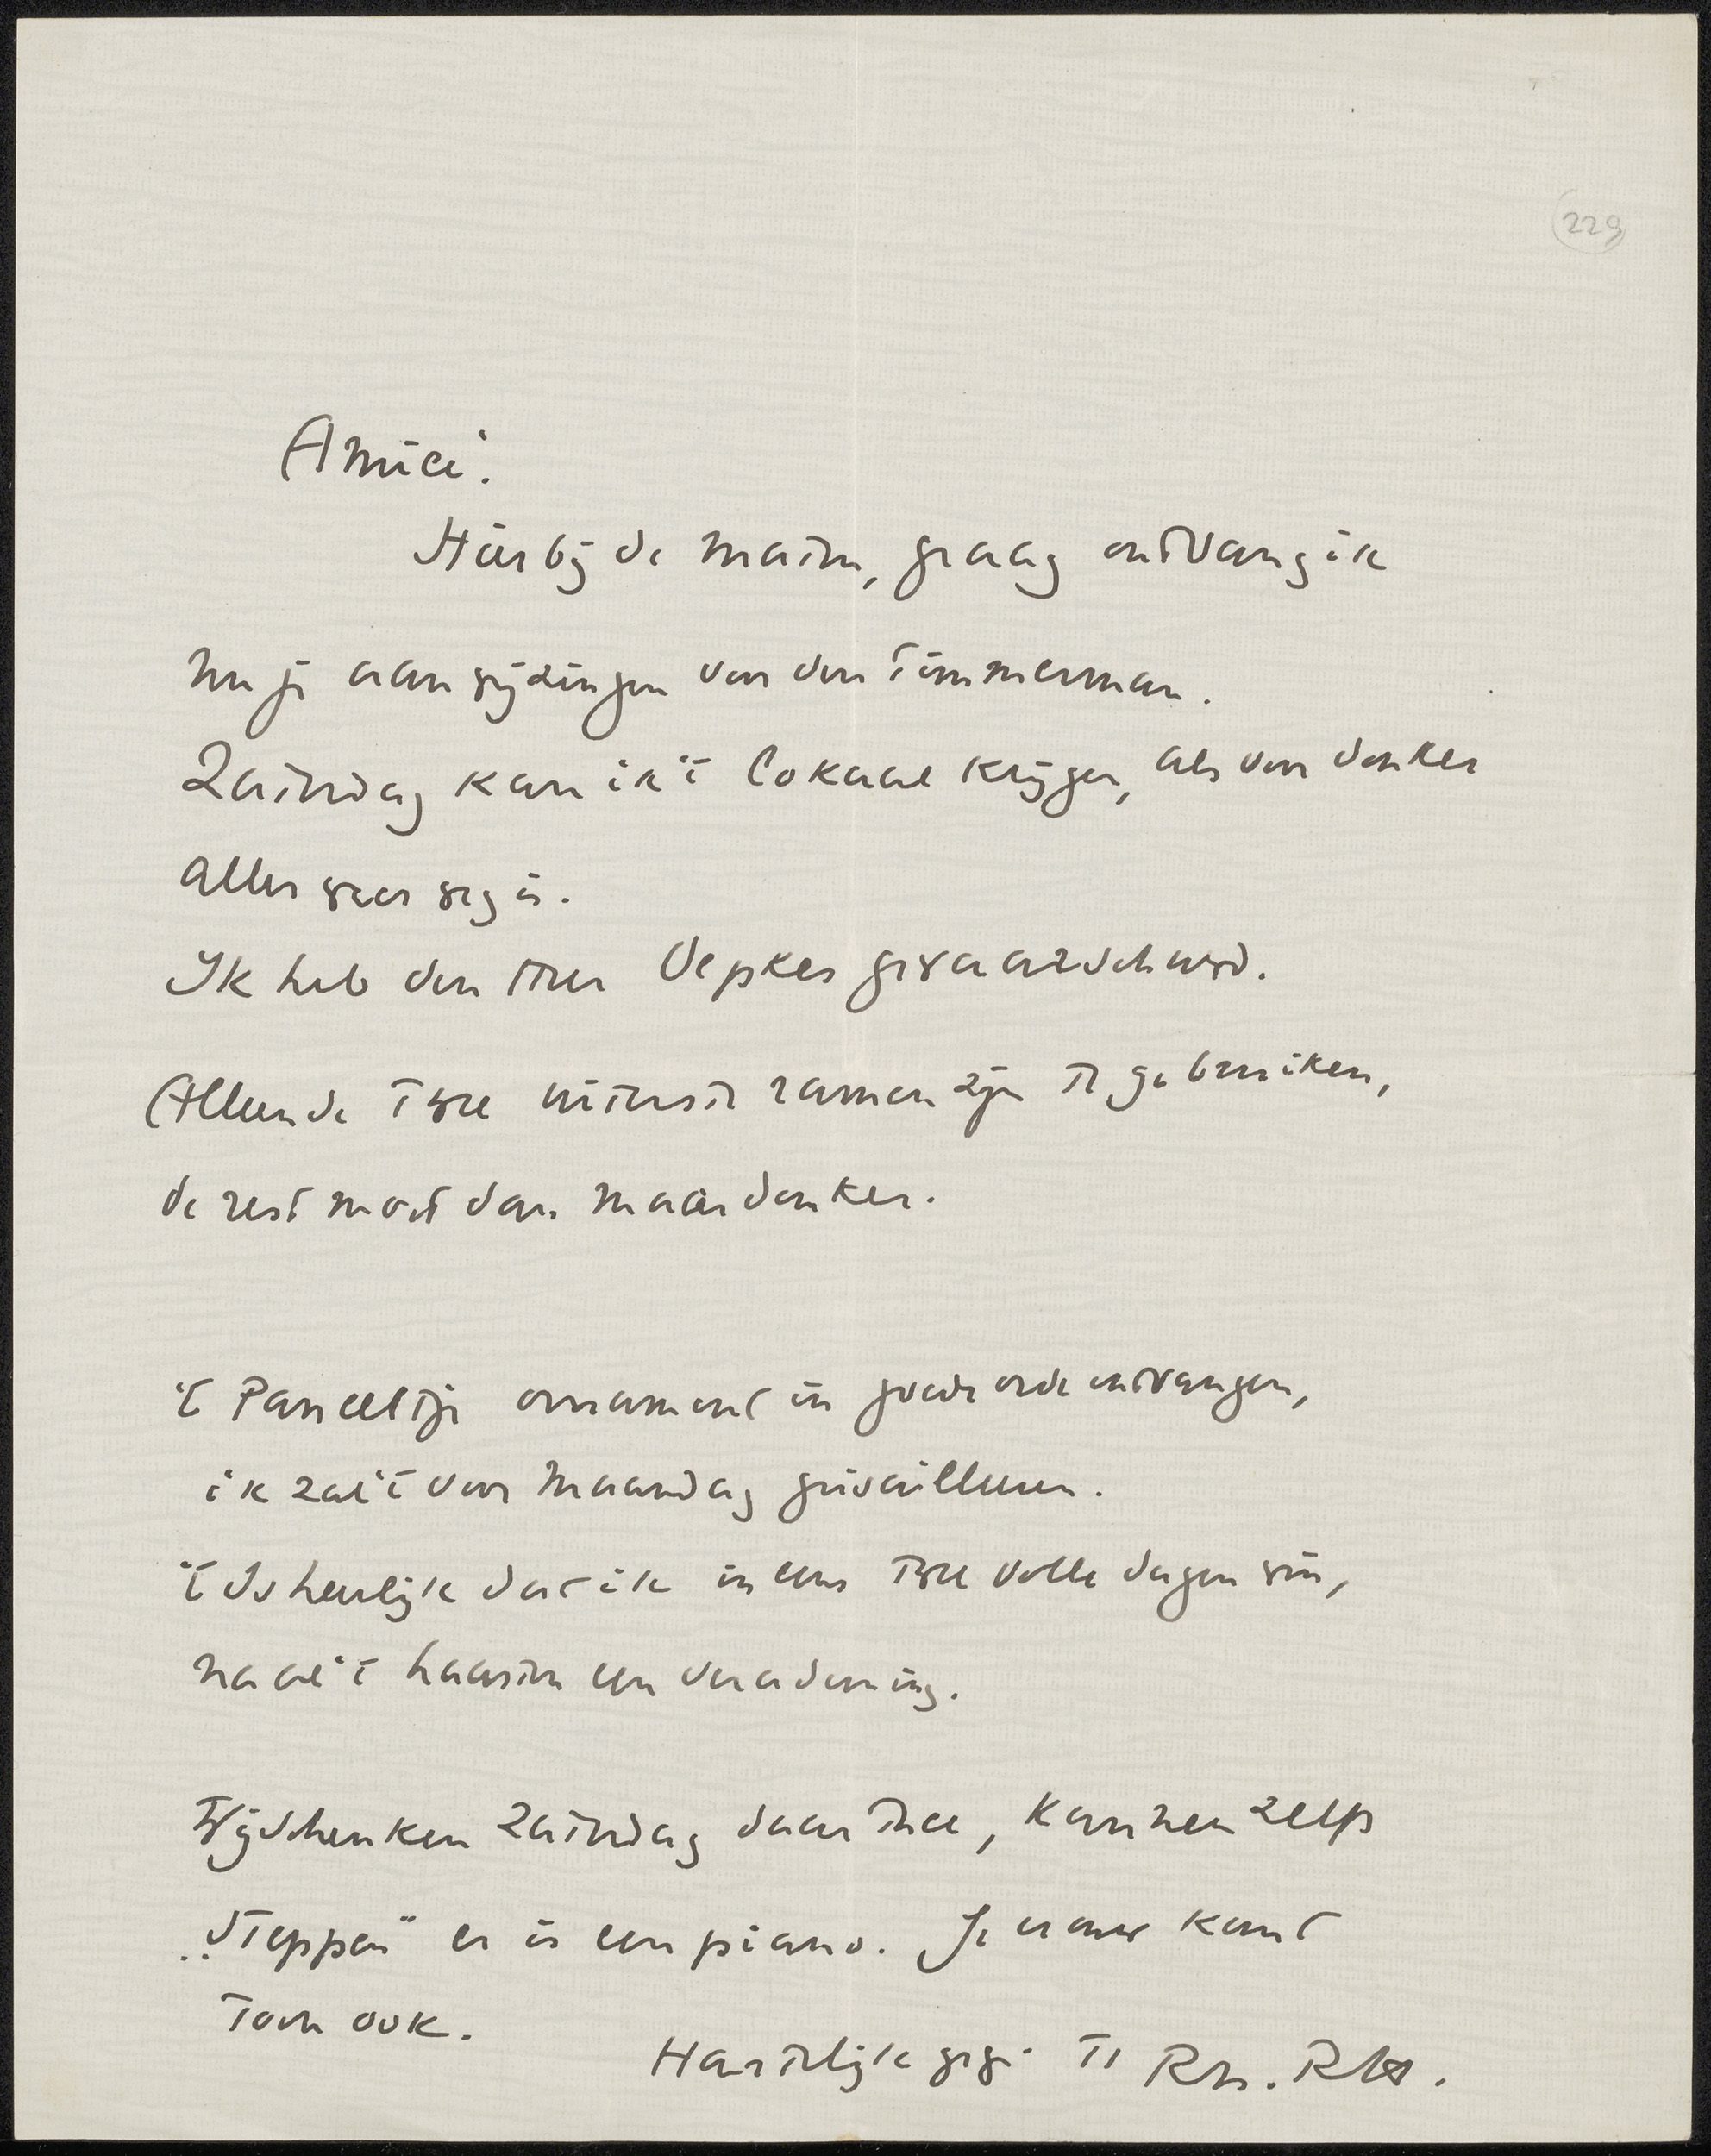 229
Amice.
Hierbij de maten, graag ontvang ik
nu je aanwijzingen voor den timmerman.
Zaterdag kan ik 't lokaal krijgen, als voor donker
alles weer weg is.
Ik heb den Heer Oepkes gewaarschuwd.
Alleen de twee uiterste ramen zijn te gebruiken,
de rest moet dan maar donker.
't Panceeltje ornament in goede orde ontvangen,
ik zal 't voor Maandag guivailleeren.
't Is heerlijk dat ik ineens twee volle dagen win,
na al 't haasten een verademing.
Wij schenken Zaterdag daar thee, kunnen zelfs
„Steppen" er is een piano. Je vrouw komt
toch ook.
Hartelijk gegr. tt Rh. RH.